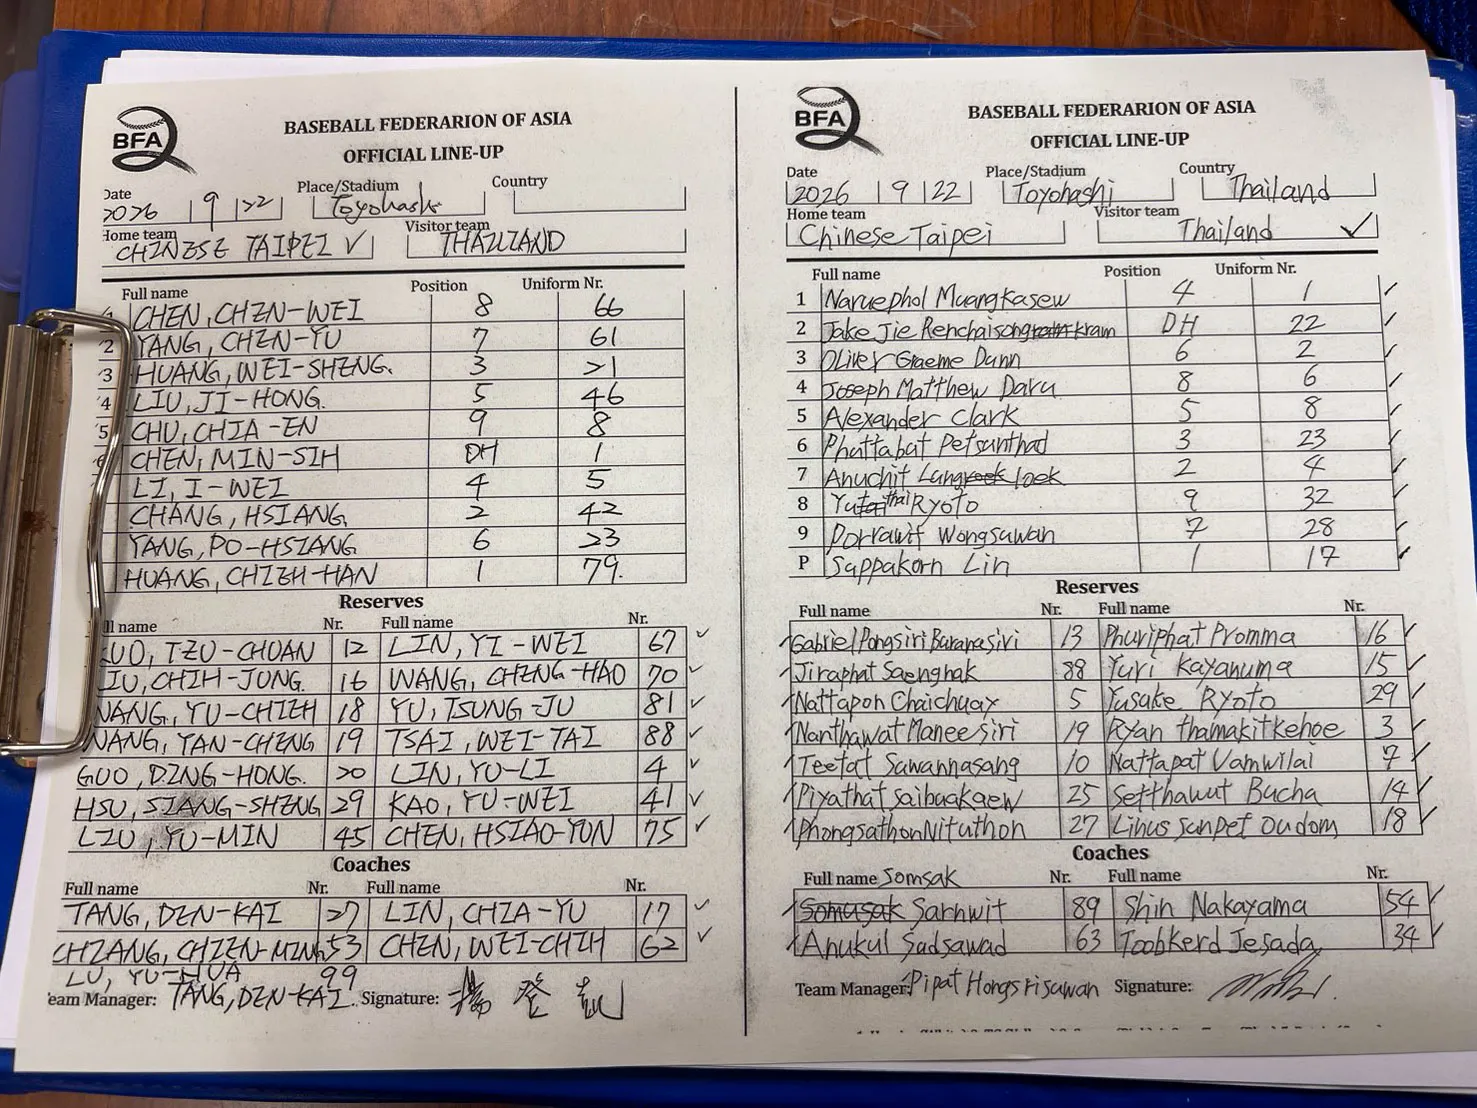 BFA
BASEBALL FEDERARION OF ASIA
OFFICIAL LINE-UP
Date Place/Stadium Country
2026 9 22 Toyohashi
Home team Visitor team
CHINESE TAIPEI ✓ THAILAND
Full name Position Uniform Nr.
CHEN, CHEN-WEI 8 66
2 YANG, CHEN-YU 7 61
3 HUANG, WEI-SHENG. 3 21
4 LIU, JI-HONG. 5 46
5 CHU, CHIA-EN 9 8
6 CHEN, MIN-SIH DH 1
LI, I-WEI 4 5
CHANG, HSIANG 2 42
YANG, PO-HSIANG 6 23
HUANG, CHIEH-HAN 1 79.
Reserves
ll name Nr. Full name Nr.
GUO, TZU-CHUAN 12 LIN, YI-WEI 67 ✓
LIU, CHIH-JUNG. 16 WANG, CHENG-HAO 70 ✓
WANG, YU-CHIEH 18 YU, TSUNG-JU 81 ✓
WANG, YAN-CHENG 19 TSAI, WEI-TAI 88 ✓
GUO, DING-HONG. 20 LIN, YU-LI 4 ✓
HSU, SIANG-SHENG 29 KAO, YU-WEI 41 ✓
LIU, YU-MIN 45 CHEN, HSIAO-YUN 75 ✓
Coaches
Full name Nr. Full name Nr.
TANG, DEN-KAI 27 LIN, CHIA-YU 17 ✓
CHIANG, CHIEN-MING 53 CHEN, WEI-CHIH 62 ✓
LU, YU-HUA 99
eam Manager: TANG, DEN-KAI. Signature:
BFA
BASEBALL FEDERARION OF ASIA
OFFICIAL LINE-UP
Date Place/Stadium Country
2026 9 22 Toyohashi Thailand
Home team Visitor team
Chinese Taipei Thailand ✓
Full name Position Uniform Nr.
1 Naruephol Muangkasew 4 1 ✓
2 Jake Jie Renchaisong kram DH 22 ✓
3 Oliver Graeme Dann 6 2 ✓
4 Joseph Matthew Daru 8 6 ✓
5 Alexander Clark 5 8 ✓
6 Phuttabat Petsunthad 3 23 ✓
7 Anuchit Lang loek 2 4 ✓
8 Yuthai Ryoto 9 32 ✓
9 Dorrawit Wongsawan 7 28 ✓
P Sappakorn Lin 1 17 ✓
Reserves
Full name Nr. Full name Nr.
Gabriel Pongsiri Buranasiri 13 Phuriphat Promma 16 ✓
Jiraphat Saenghak 88 Yuri Kayanuma 15 ✓
Nattapon Chaichuay 5 Yusake Ryoto 29 ✓
Nanthawat Maneesiri 19 Ryan thamakitkehoe 3 ✓
Teetat Sawannasang 10 Nattapat Vamwilai 7 ✓
Piyathat Saibuakaew 25 Setthawut Bucha 14 ✓
Phongsathon Nituthon 27 Linus Sanpet Oudom 18 ✓
Coaches
Full name Somsak Nr. Full name Nr.
Somusak Sarnwit 89 Shin Nakayama 54 ✓
Anukul Sadsawad 63 Toobkerd Jesada 34 ✓
Team Manager: Pipat Hongsrisuwan Signature: